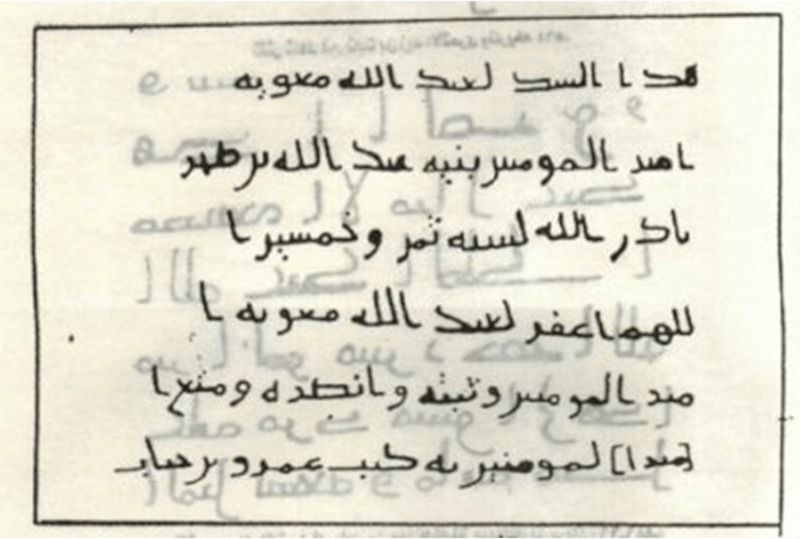 هدا السد لعبد الله معويه
امير المومنين بنيه عبد الله بن صخر
باذن الله لسنه ثمن وخمسين ا
للهم اغفر لعبد الله معويه ا
مير المومنين وثبته وانصره ومتع ا
[مير ا]لمومنين به كتب عمرو بن حباب